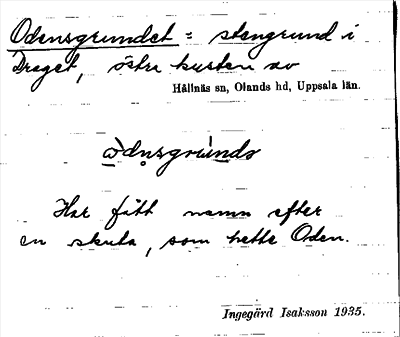 Odensgrundet = stengrund i
Draget, östra kusten av
Hållnäs sn, Olands hd, Uppsala län.
Har fått namn efter
en skuta, som hette Oden.
Ingegärd Isaksson 1935.